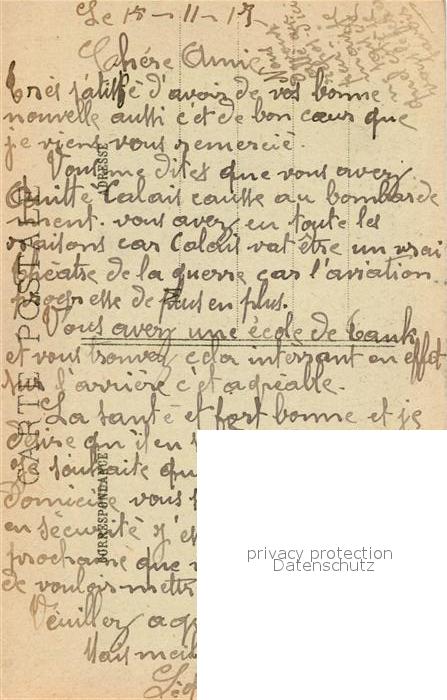 Le 18-11-17
Ma chére Amie
très satisfé d'avoir de vos bonne
nouvelle aussi c'et de bon cœur que
je viens vous remercié.
Vous me dites que vous avez
Quitté Calais causse au bombarde
ment. vous avez en toute les
raisons car Calais vat être un vrai
théatre de la guerre car l'aviation
progresse de plus en plus.
Vous avez une école de tank
et vous trouvez cela interzant en effet
sur l'arrière c'et agréable.
La santé et fort bonne et je
désire qu'il en
je souhaite qu
Domicile vous
en sécurité j'es
prochaine que
de vouloir mettr
Veuillez ag
Mais meil
CARTE POSTALE
ADRESSE
CORRESPONDANCE
privacy protection
Datenschutz